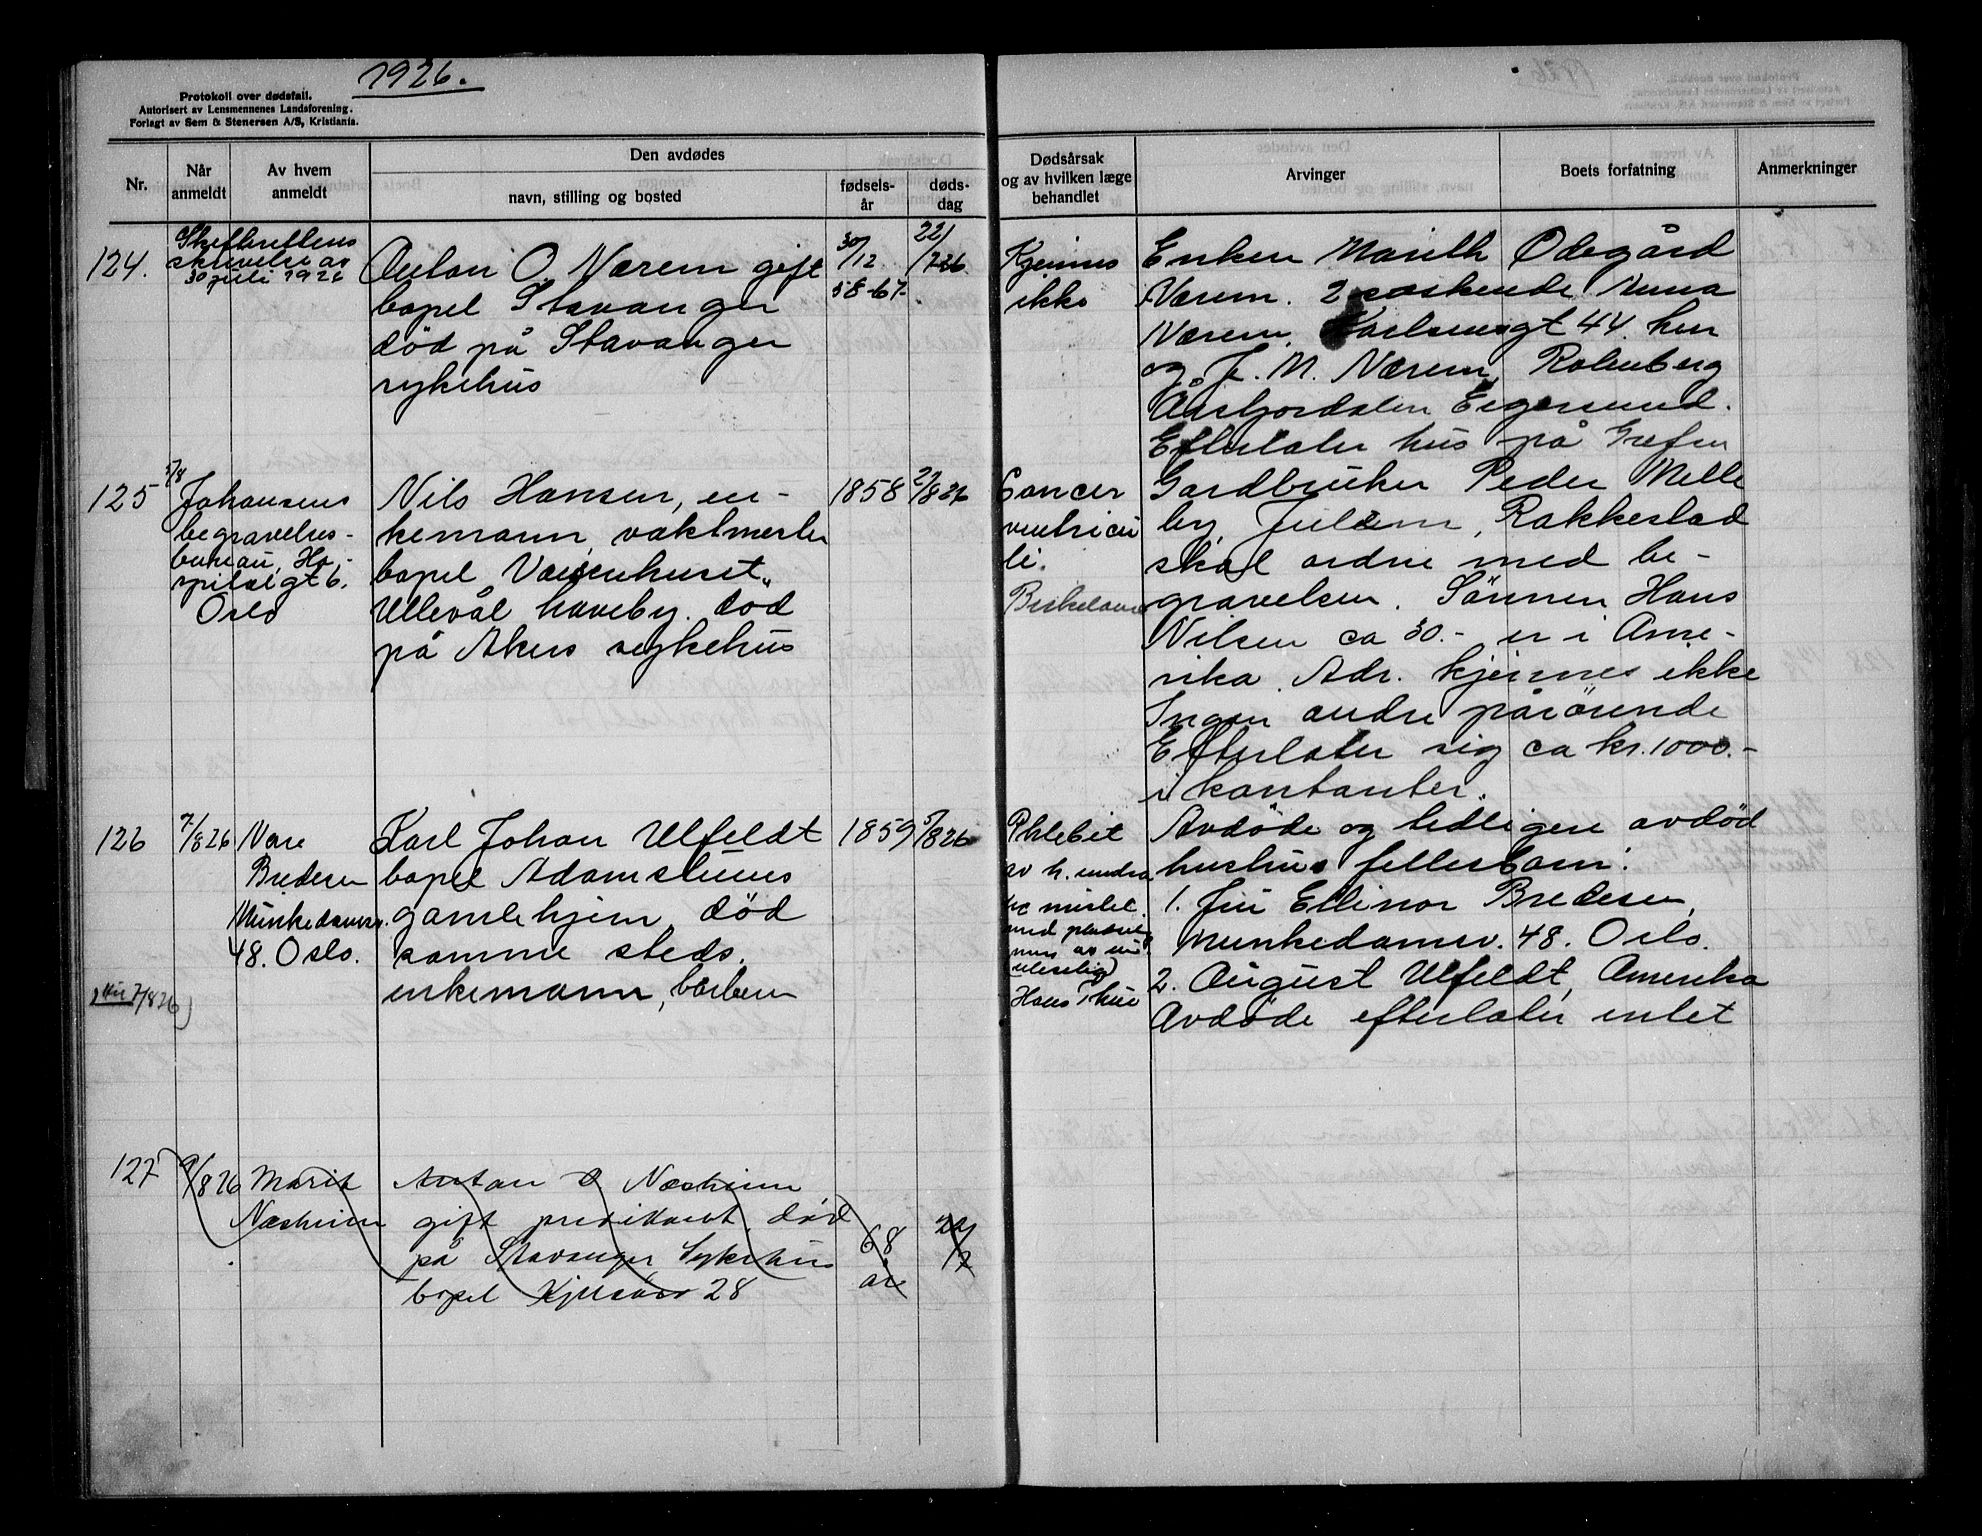 1926.
Protokoll over dødsfall.
Autorisert av Lensmennenes Landsforening.
Forlagt av Sem & Stenersen A/S, Kristiania.
Nr.
Når anmeldt
Av hvem anmeldt
Den avdødes
navn, stilling og bosted
fødsels-år
døds-dag
Dødsårsak og av hvilken læge behandlet
Arvinger
Boets forfatning
Anmerkninger
124.
Skifterettens
skrivelse av
30 juli 1926
Anton O. Nærem gift
bopel Stavanger
død på Stavanger
sykehus
30/12
58-67-
22/726
Kjennes
ikke
Enken Marith Ødegård
Nærem. 2 søskende Anna
Nærem, gt 44. her
og J. M. Nærem, Rosenberg
Eigersund.
Efterlater hus på Grefsen
125
5/8
Johansens
begravelses-
bureau, Ho-
spitalsgt 6.
Oslo
Nils Hansen, en-
kemann, vaktmester
bopel Vaisenhuset,
Ullevål haveby. død
på Akers sykehus
1858
2/826
Cancer
ventricu
li.
Gardbruker Peder Melle
by, Rakkestad
skal ordne med be-
gravelsen. Sønnen Hans
Nilsen ca 30.- er i Ame-
rika. Adr. kjennes ikke
Ingen andre pårørende
Efterlater sig ca kr. 1000.-
i kontanter.
126
7/826
Nare
Bredesen
Munkedamsv.
48. Oslo.
7/826)
Karl Johan Ulfeldt
bopel Adamstuens
gamlehjem, død
samme steds.
enkemann, barbera
1859
5/826
Phlebit
av h. undre
med
(uleselig)
Avdøde og tidligere avdød
hustrus fellesbarn:
1. Fru Ellinor Bredesen,
Munkedamsv. 48. Oslo.
2. August Ulfeldt, Amerika
Avdøde efterlater intet
127
9/826
Marit
Næsheim
Anton O Næsheim
gift predikant, død
på Stavanger Sykehus
bopel Kjelsåsv 28
68
år
22/7